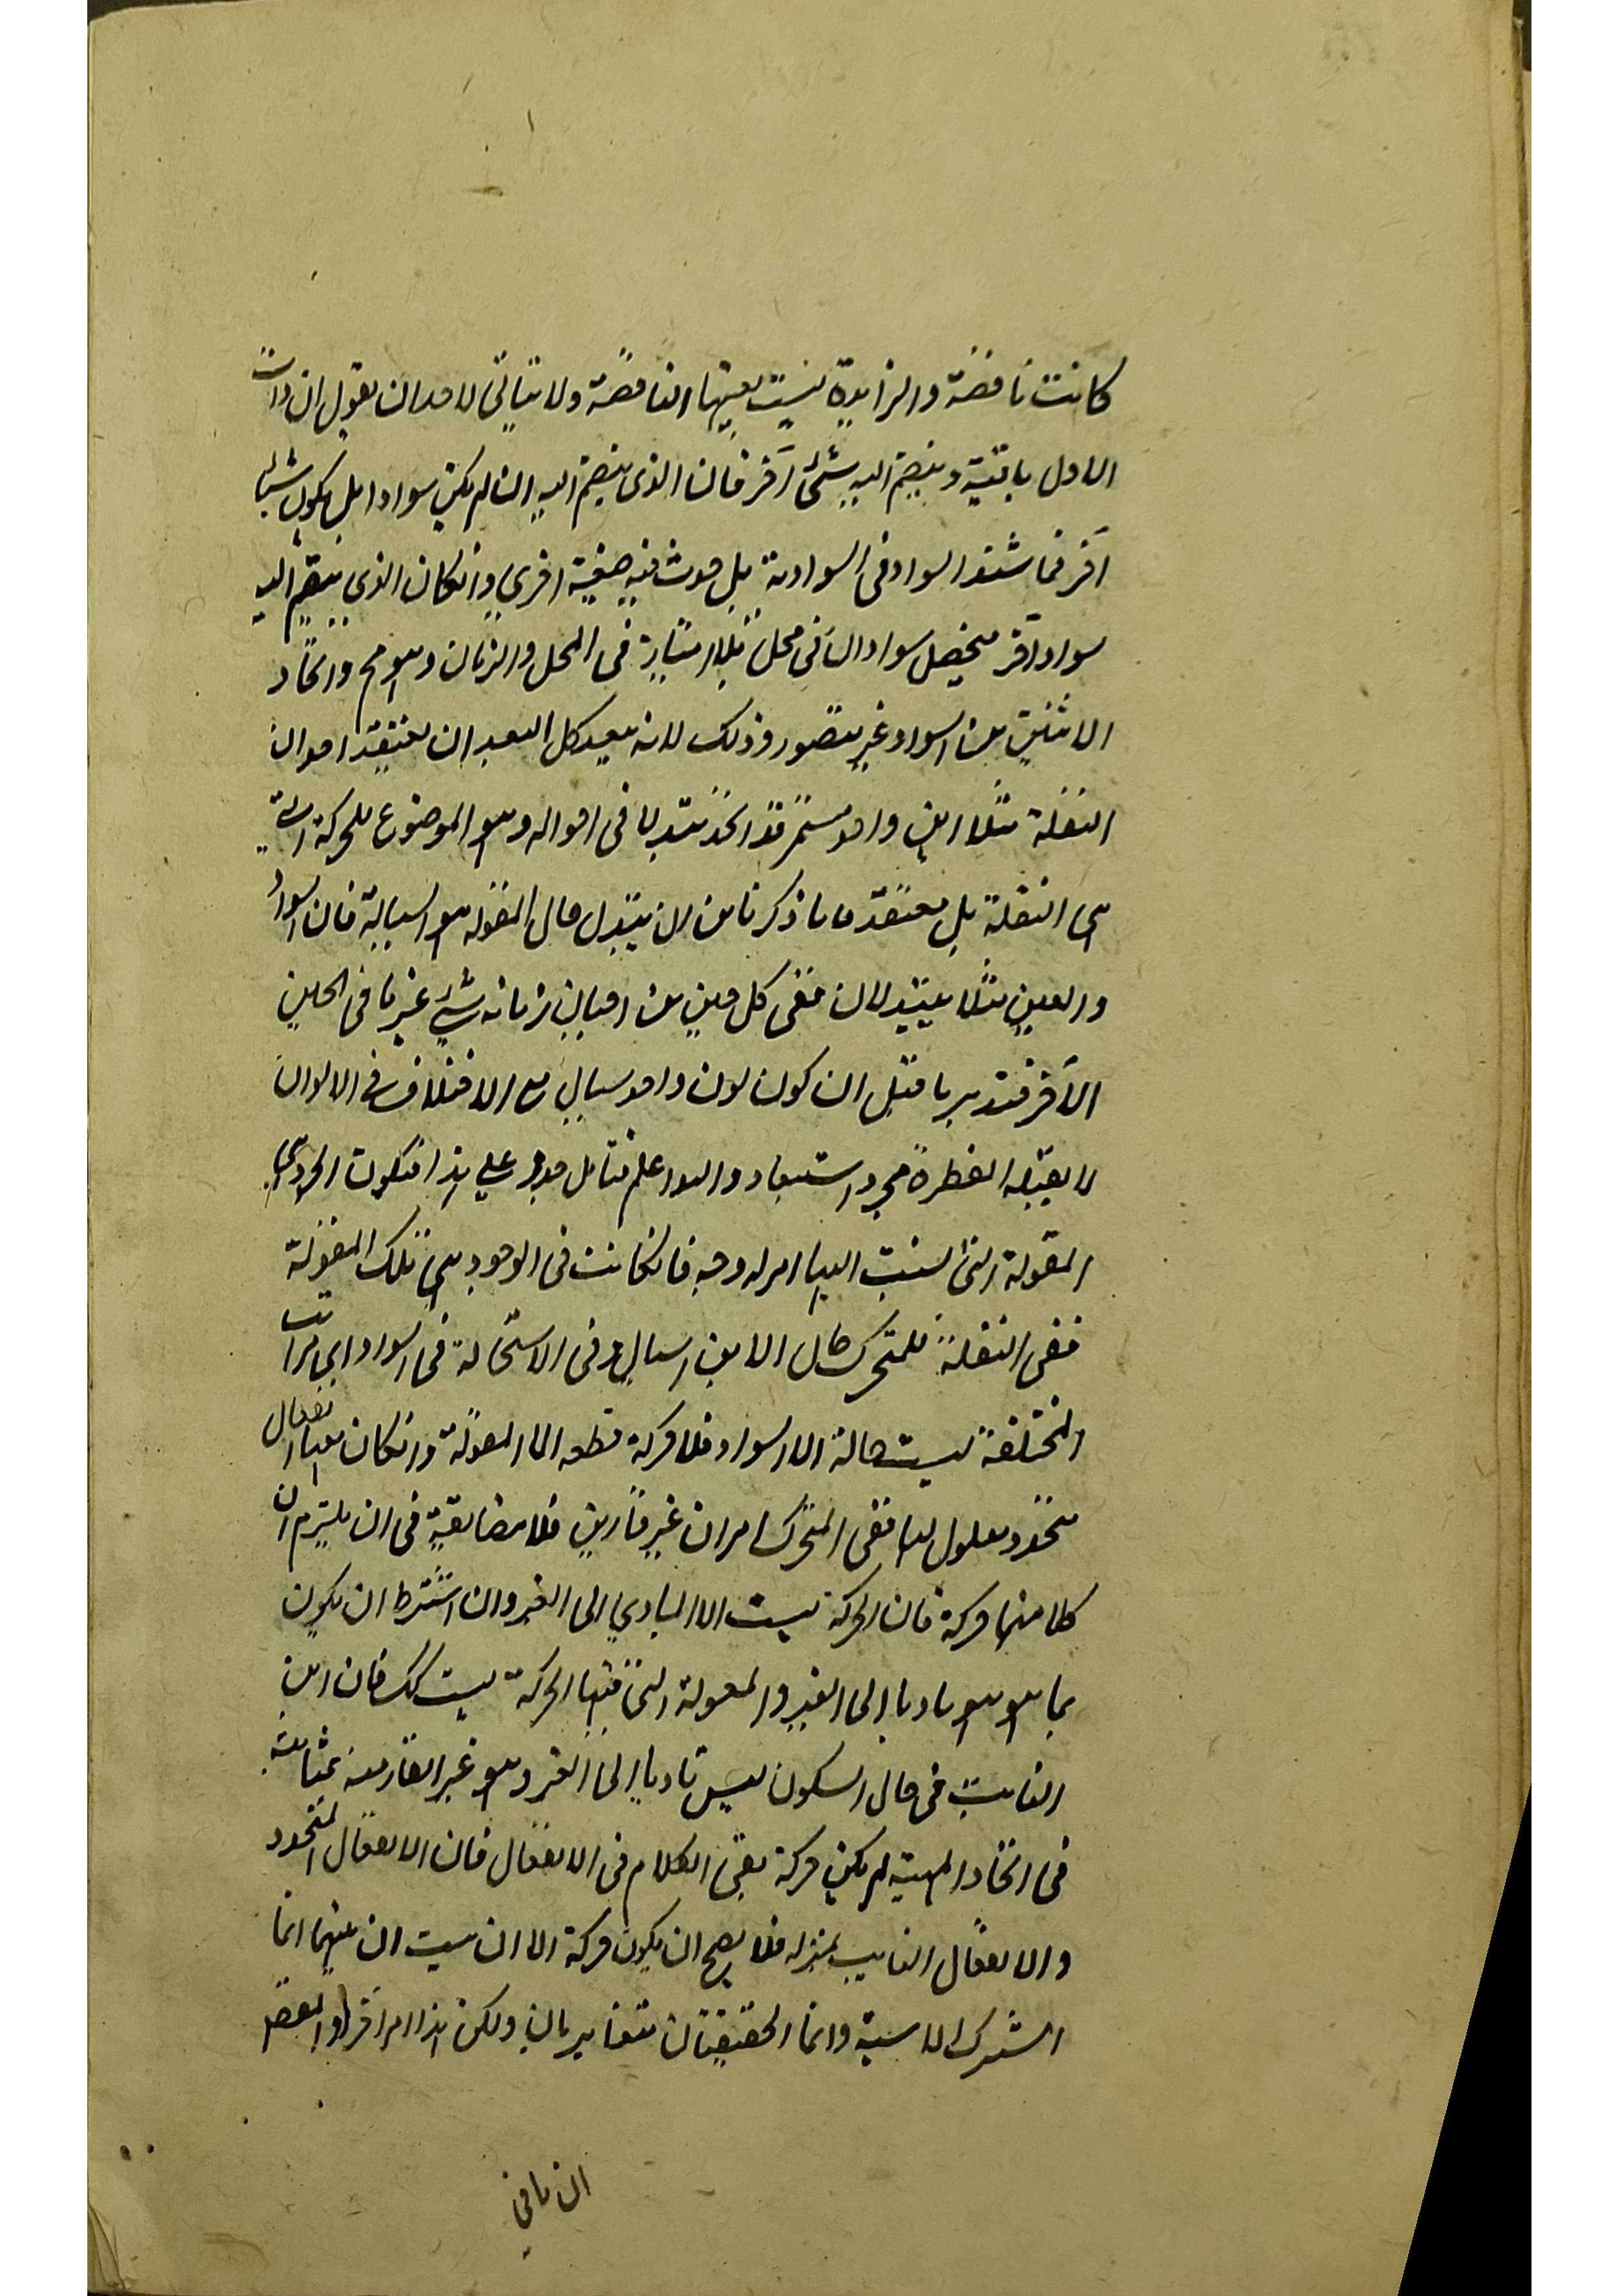 كانت ناقصة والزايدة ليست بعينها الناقصة ولا يتاتى لاحد ان يقول ان ذات
الاول باقية وينضم اليه شئ آخر فان الذى ينضم اليه ان لم يكن سوادا بل يكون شيئا
آخر فما اشتد السواد فى السوادية بل حدث فيه صفة اخرى وانكان الذى ينضم اليه
سواد آخر فيحصل سوادان فى محل بلا امتياز فى المحل والزمان وهو مح واتحاد
الاثنين من السواد غير متصور وذلك لانه بعيد كل البعد ان يعتقد احد ان
النقلة مثلا اين واحد مستمر قد اخذ متبدلا فى احواله وهو الموضوع للحركة التى
هى النقلة بل معتقد ما ذكرنا من ان يتبدل حال المقولة هو السيالية فان السواد
والعين مثلا يتبدلان ففى كل حين من احيان زمانه شئ غير ما فى الحين
الآخر فتدبر ما قيل ان كون لون واحد سيال مع الاختلاف فى الالوان
لا يقبله الفطرة مجرد استبعاد والله اعلم فتامل على هذا فيكون الحركة هى
المقولة التى نسبت اليها امر له وجه فانكانت فى الوجود هى تلك المقولة
ففى النقلة للمتحرك حال الاين السيال وفى الاستحالة فى السواد اى مراتب
المختلفة ليست حالة الا السواد فلا حركة قطعه الا المقولة وانكان هناك انفعال
متجدد معلول لها ففى المتحرك امران غير قارين فلا مضايقة فى ان يلتزم ان
كلا منهما حركة فان الحركة ليست الا التادى الى الغير وان اشترط ان يكون
بما هو هو تاديا الى الغير والمقولة التى فيها الحركة ليست كك فان اين
الثابت فى حال السكون ليس تاديا الى الغير وهو غير القار منه بمثابته
فى اتحاد المهية لم يكن حركة بقى الكلام فى الانفعال فان الانفعال المتجدد
والانفعال الثابت بمنزلة فلا يصح ان يكون حركة الا ان يثبت ان بينهما انما
اشترك الاسمية وانما الحقيقتان متغايرتان ولكن هذا امر آخر والبعض
ان ما فى